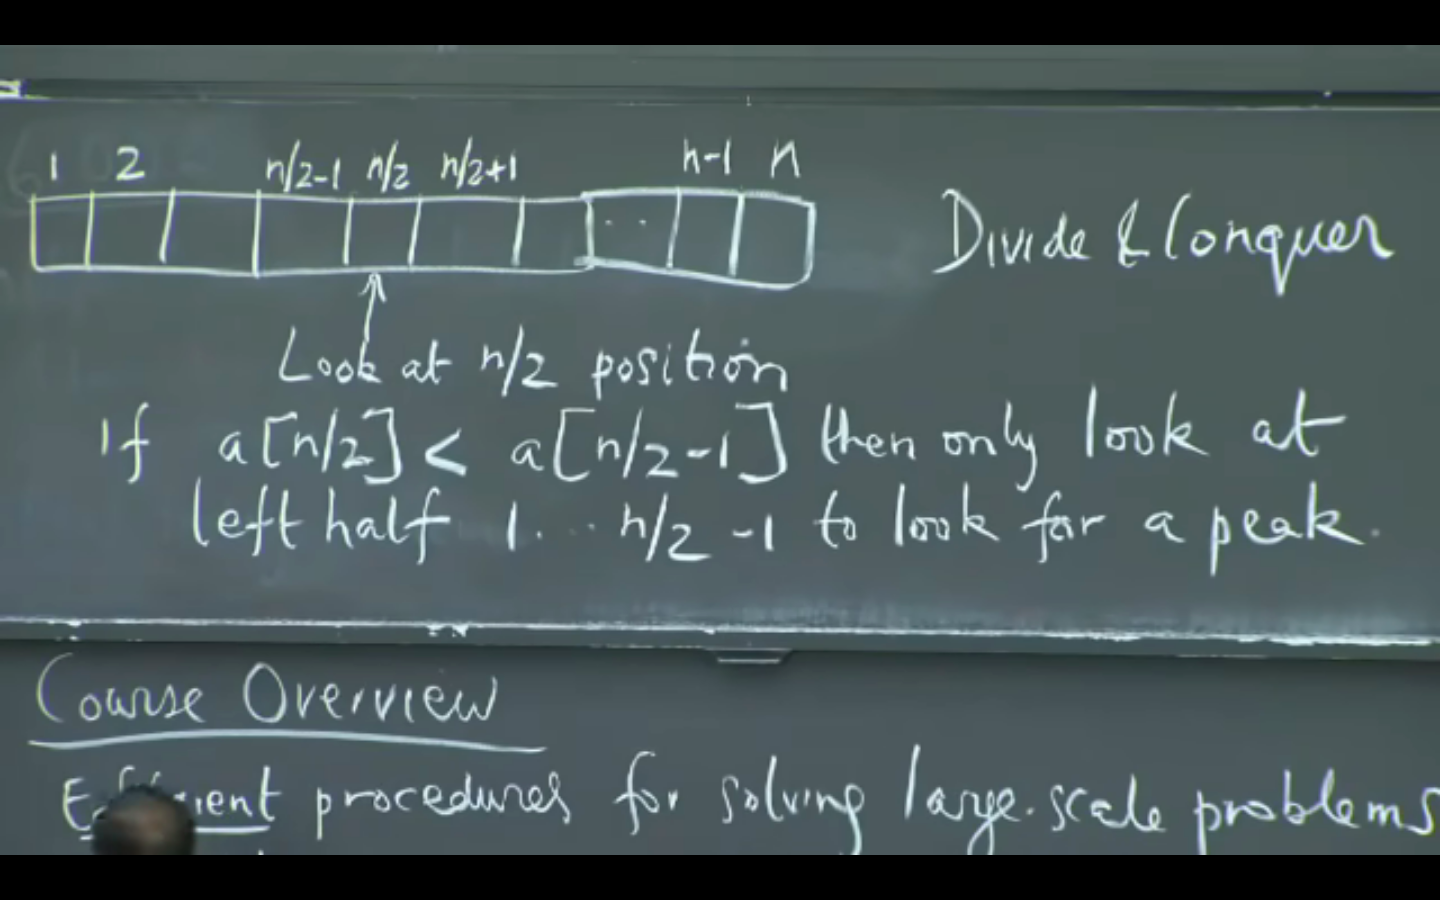 1 2 n/2-1 n/2 n/2+1 n-1 n
Divide & Conquer
Look at n/2 position
If a[n/2] < a[n/2-1] then only look at
left half 1... n/2 -1 to look for a peak.
Course Overview
procedures for solving large-scale problems